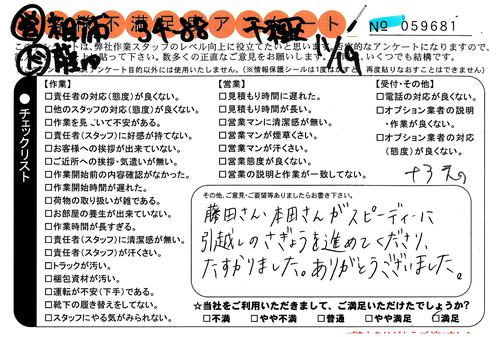 不満足度アンケート
No 059681
11/19
このアンケートは、弊社作業スタッフのレベル向上に役立てたいと思います。否定的なアンケートになりますので、
アンケート目的以外には使用いたしません。(※情報保護シールは1度はがすと、再度貼りなおすことはできません)
チェックリスト
【作業】
□責任者の対応(態度)が良くない。
□他のスタッフの対応(態度)が良くない。
□作業を見ていて不安がある。
□責任者(スタッフ)に好感が持てない。
□お客様への挨拶が出来ていない。
□ご近所への挨拶・気遣いが無い。
□作業開始前の内容確認がなかった。
□作業開始時間が遅れた。
□荷物の取り扱いが雑である。
□お部屋の養生が出来ていない。
□作業時間が長すぎる。
□責任者(スタッフ)に清潔感が無い。
□責任者(スタッフ)が汗くさい。
□トラックが汚い。
□梱包資材が汚い。
□運転が不安(下手)である。
□靴下の履き替えをしてない。
□スタッフにやる気がみられない。
【営業】
□見積もり時間に遅れた。
□見積もり時間が長い。
□営業マンに清潔感が無い。
□営業マンが煙草くさい。
□営業マンが汗くさい。
□営業態度が良くない。
□営業の説明と作業が一致してない。
【受付・その他】
□電話の対応が良くない。
□オプション業者の説明
・作業が良くない。
□オプション業者の対応
(態度)が良くない。
その他、ご意見・ご要望等ありましたらお書き下さい。
藤田さん・本田さんがスピーディーに
引越しのさぎょうを進めてくださり、
たすかりました。ありがとうございました。
☆当社をご利用いただきまして、ご満足いただけたでしょうか?
□不満 □やや不満 □普通 □やや満足 □満足